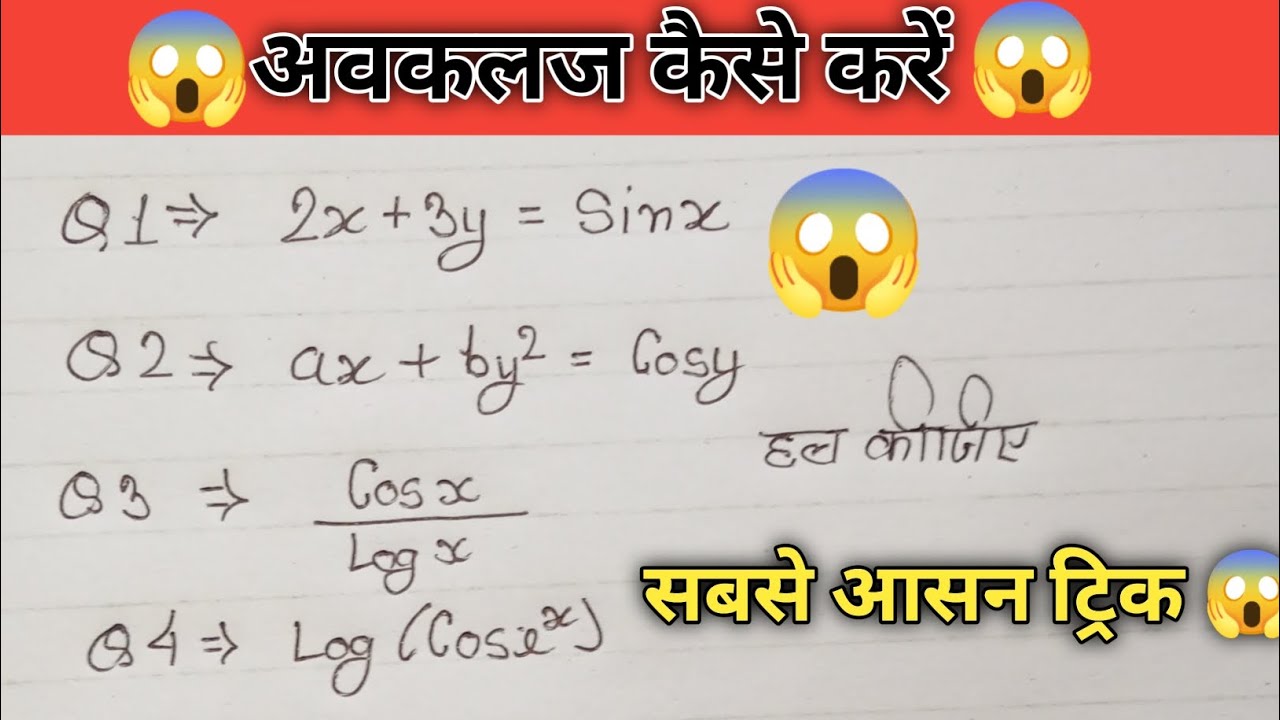 अवकलज कैसे करें
Q1⇒ 2x+3y = Sinx
Q2⇒ ax + by² = Cosy
हल कीजिए
Q3 ⇒ Cosx / Logx
सबसे आसन ट्रिक
Q4⇒ Log(Cose^x)